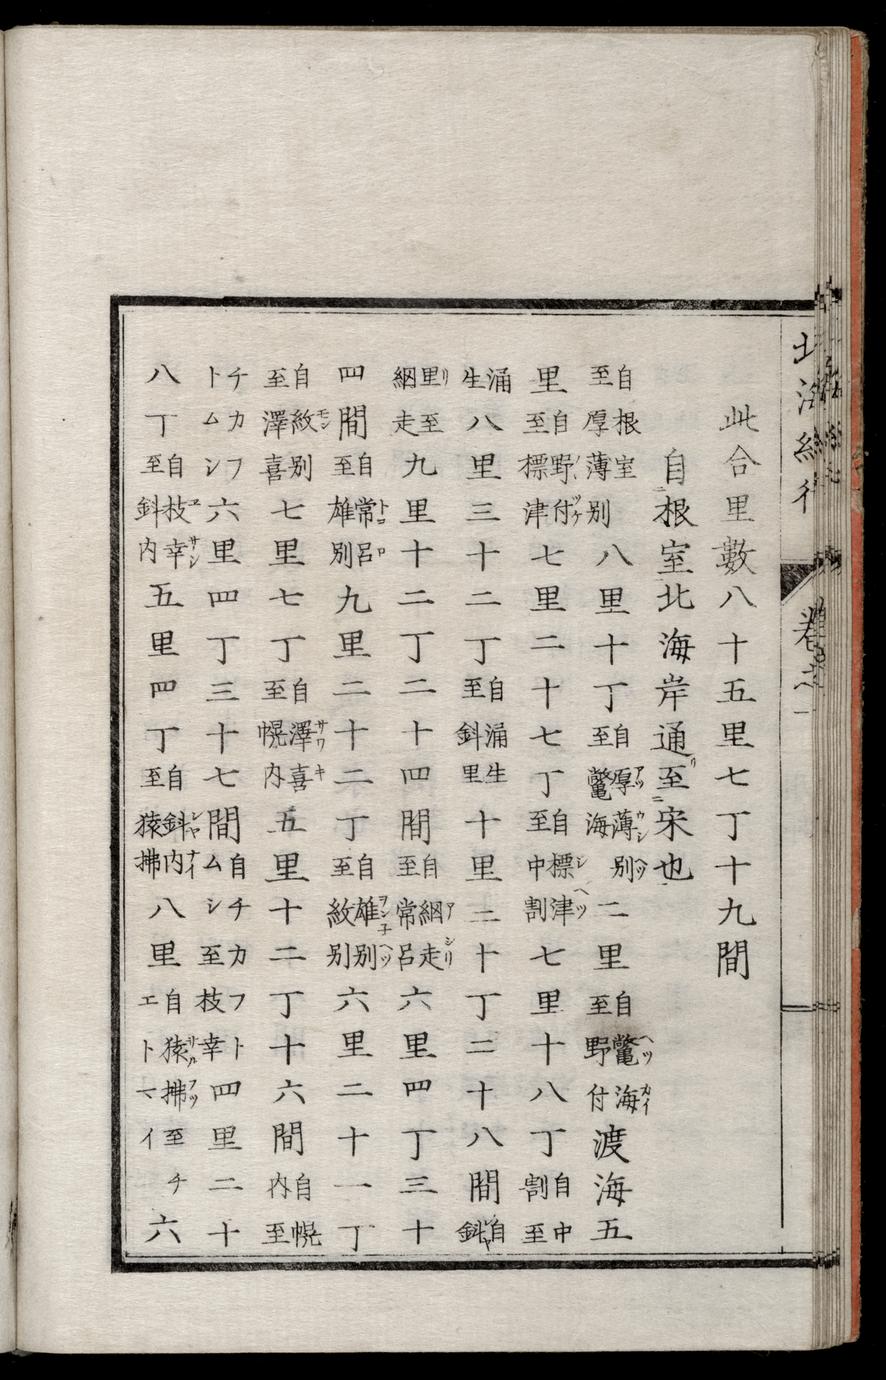 北海紀行 卷之一
此合里數八十五里七丁十九間
自根室北海岸通リ至宋也
自根室至厚薄別八里十丁自厚薄別至鼈海二里自鼈海至野付渡海五
里自野付至標津七里二十七丁自標津至中割七里十八丁自中割至
涌生八里三十二丁自涌生至斜里十里二十丁二十八間自斜
里至網走九里十二丁二十四間自網走至常呂六里四丁三十
四間自常呂至雄別九里二十二丁自雄別至紋別六里二十一丁
自紋別至澤喜七里七丁自澤喜至幌内五里十二丁十六間自幌内至
チカフトムシ六里四丁三十七間自チカフトムシ至枝幸四里二十
八丁自枝幸至斜内五里四丁自斜内至猿拂八里自猿拂至チエトマイ六